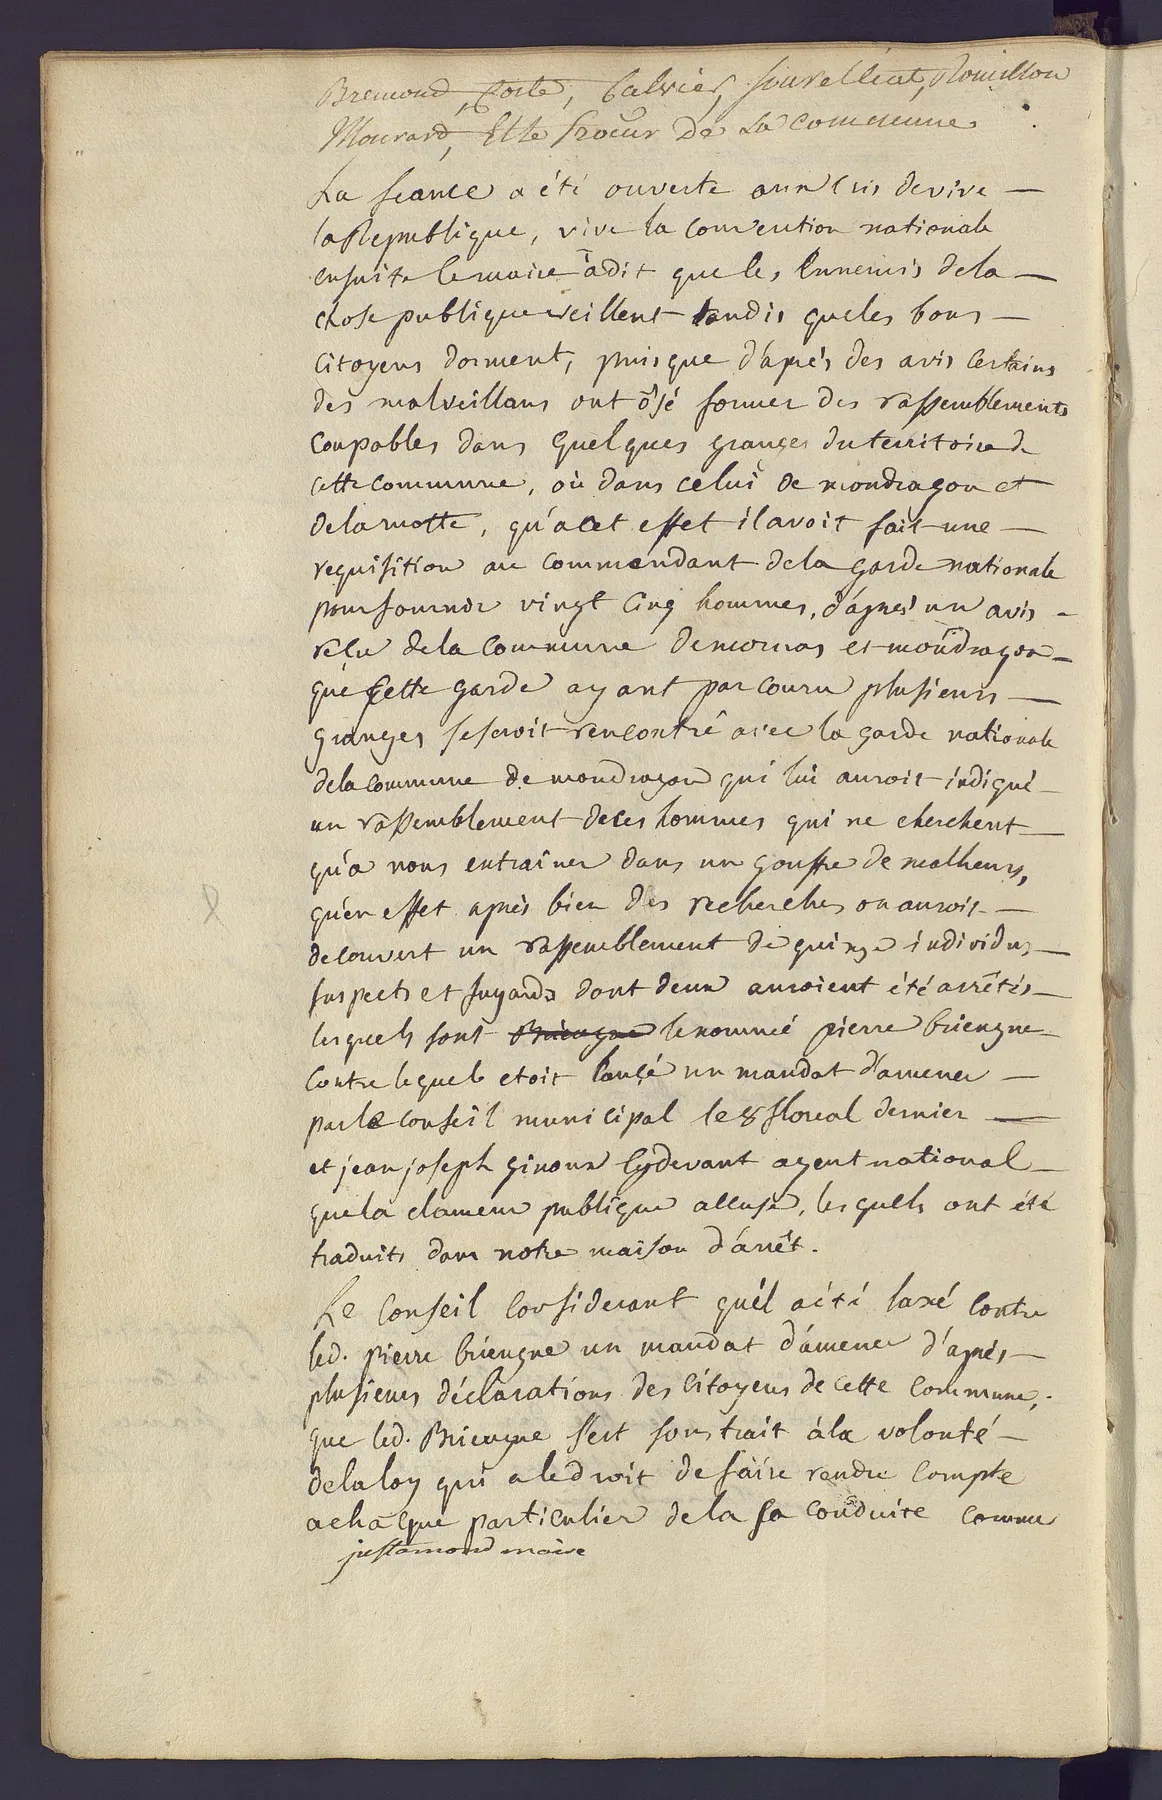 Bremond, Coste, Calvier, Souvelleat, Rouillon
Mourard, Et le procur de La commune
La seance a été ouverte aux cris de vive —
la Republique, vive la convention nationale
ensuite le maire à dit que les Ennemis dela —
chose publique veillent tandis queles bons —
Citoyens dorment, puisque d'aprés des avis Certains
des malveillans ont ôsé former des rassemblements
Coupables dans quelques granges du territoire de
cette commune, où dans celui de mondragon et
delamotte, qu'acet effet il avoit fait une —
requisition au commendant dela garde nationale
pour fournir vingt cinq hommes, d'aprés un avis -
reçu dela Commune demornas et mondragon —
que Cette garde ayant parcouru plusieurs —
granges seseroit rencontré avec la garde nationale
delacommune de mondragon qui lui auroit indiqué —
un rassemblement deces hommes qui ne cherchent —
qu'a nous entrainer dans un gouffre de malheurs,
qu'en effet aprés bien des recherches on auroit —
decouvert un rassemblement de quinze individus —
suspects et fuyards dont deux auroient été arrêtés —
lesquels sont Briengne lenommé pierre briengne
contre lequel etoit lancé un mandat d'amener —
parle conseil municipal le 8 floreal dernier —
et jean joseph giroux Cydevant agent national —
quela clameur publique accuse, lesquels ont été
traduits dans notre maison d'arrêt.
Le Conseil Considerant quél a été laxé contre
led. pierre briengne un mandat d'amener d'aprés —
plusieurs déclarations des Citoyens de cette commune,
que led. Briengne s'est soustrait àla volonté —
delaloy qui aledroit defaire rendre compte
achaque particulier dela sa conduite comme
justamond maire